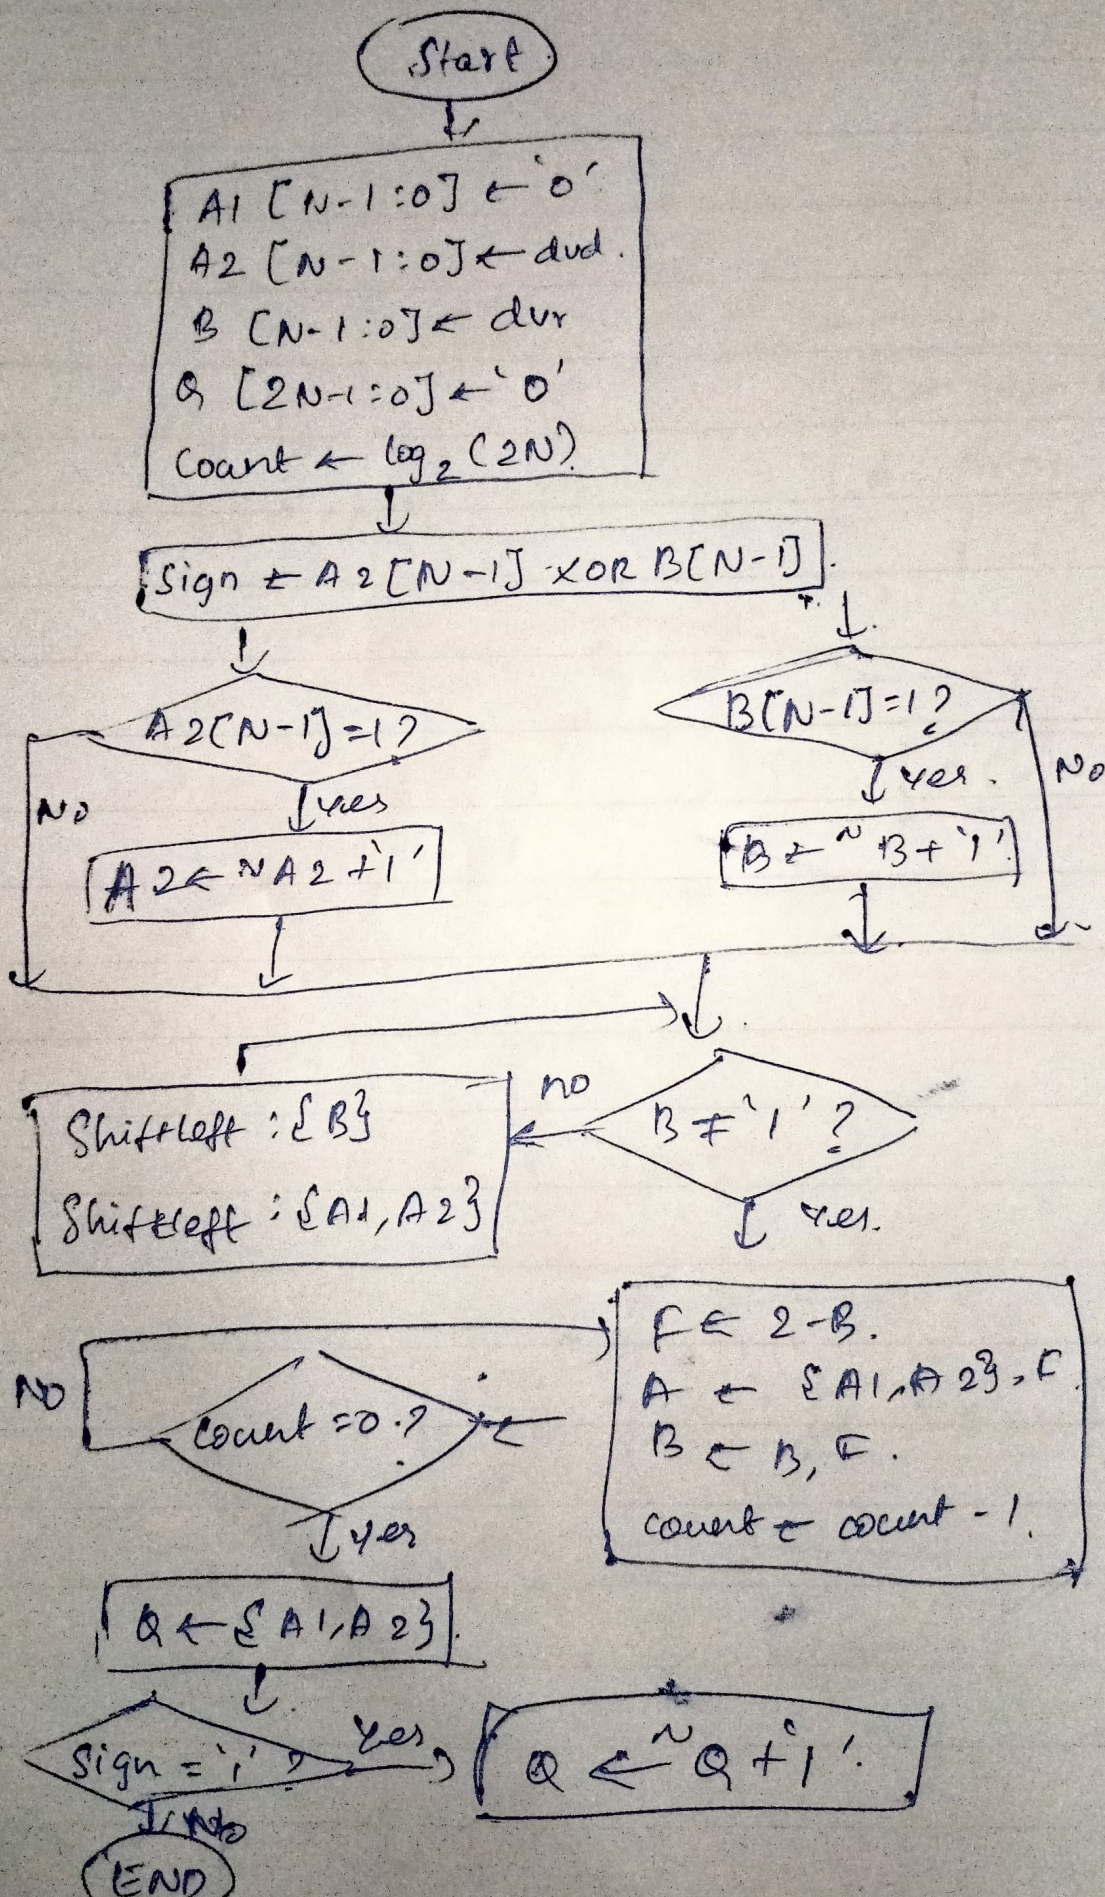 Start
A1 [N-1:0] ← '0'
A2 [N-1:0] ← dvd.
B [N-1:0] ← dvr
Q [2N-1:0] ← '0'
Count ← log₂ (2N)
Sign ← A2[N-1] XOR B[N-1]
A2[N-1]=1?
B[N-1]=1?
No
Yes
Yes.
No
A2 ← ~A2 + '1'
B ← ~B + '1'
Shiftleft : {B}
Shiftleft : {A1, A2}
no
B ≠ '1' ?
Yes.
F ← 2-B.
A ← {A1, A2}, F.
B ← B, F.
count ← count - 1.
NO
Count = 0.?
Yes
Q ← {A1, A2}.
Sign = '1' ?
Yes
Q ← ~Q + '1'.
No
END